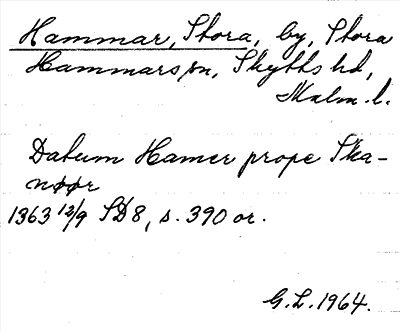 Hammar, Stora, by, Stora
Hammars sn, Skytts hd,
Malm. l.
Datum Hamer prope Ska-
nøør
1363 12/9 SD 8, s. 390 or.
G.L. 1964.